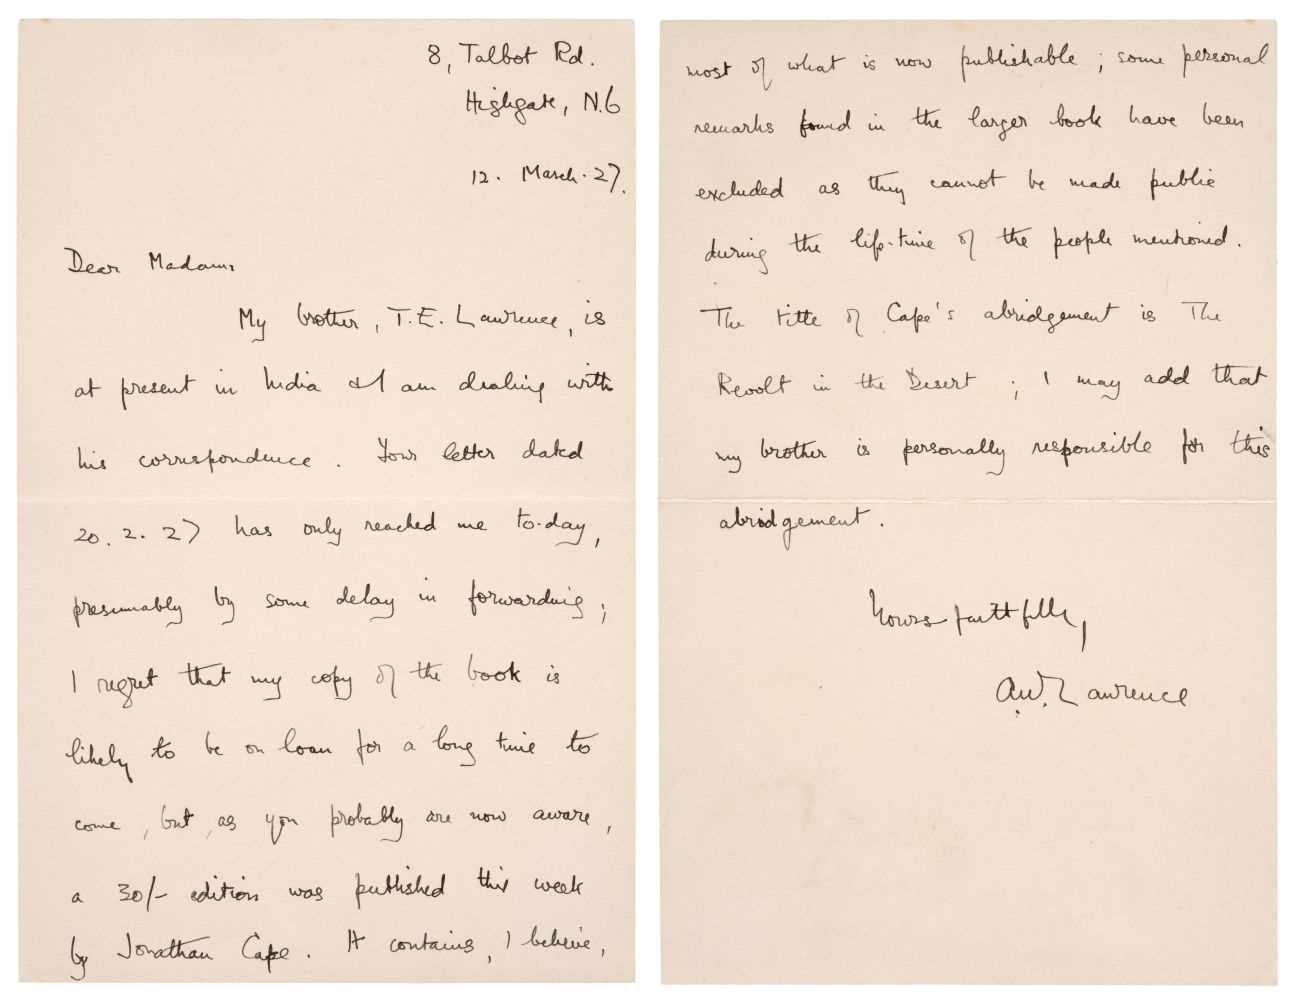 8, Talbot Rd.
Highgate, N.6
12. March. 27.
Dear Madam,
My brother, T.E. Lawrence, is
at present in India & I am dealing with
his correspondence. Your letter dated
20. 2. 27 has only reached me to-day,
presumably by some delay in forwarding;
I regret that my copy of the book is
likely to be on loan for a long time to
come, but, as you probably are now aware,
a 30/- edition was published this week
by Jonathan Cape. It contains, I believe,
most of what is now publishable; some personal
remarks found in the larger book have been
excluded as they cannot be made public
during the life-time of the people mentioned.
The title of Cape's abridgement is The
Revolt in the Desert; I may add that
my brother is personally responsible for this
abridgement.
Yours faithfully,
A.W. Lawrence